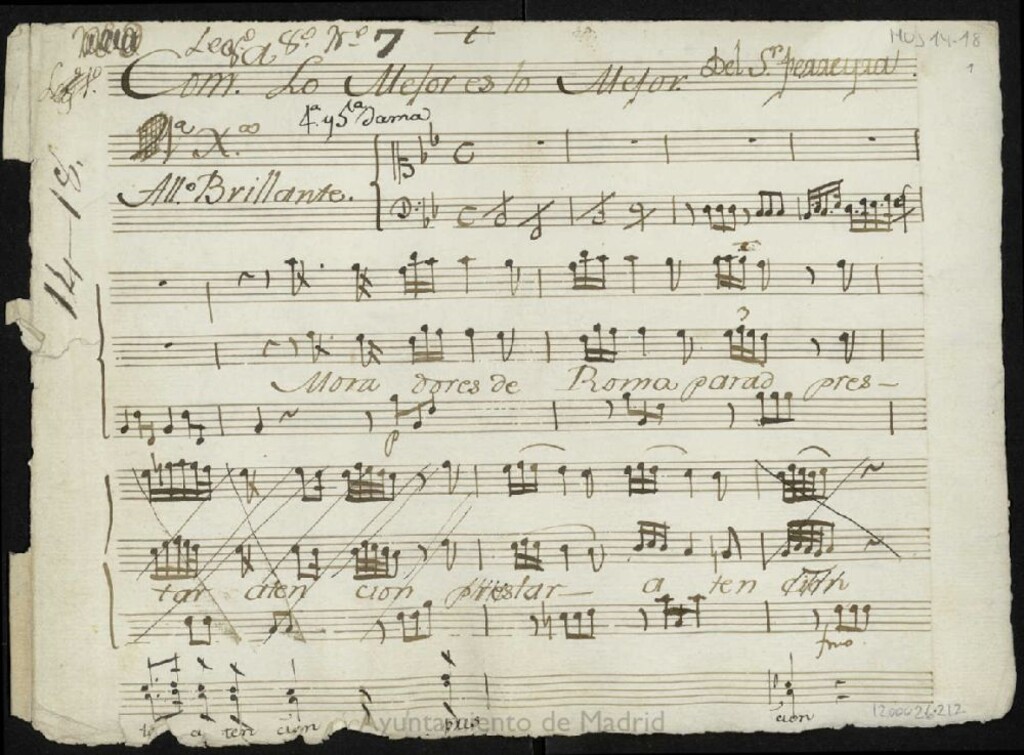 Leg.º 8.º N.º 7
MUS 14-18
1
Com. Lo Mejor es lo Mejor.
Del S.r ferreyra.
4.ª y 5.ª dama
All.º Brillante.
14-18.
3
Mora dores de Roma parad pres-
p
tar aten cion prestar- a ten cion
fmo
to a ten cion pres cion
Ayuntamiento de Madrid
1200026212